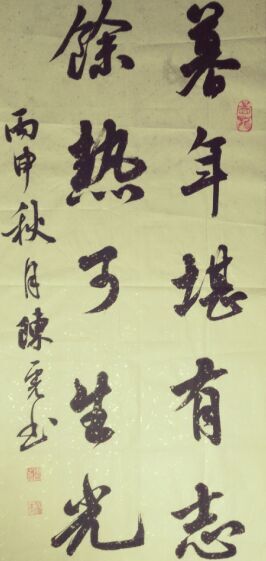 暮年堪有志
餘热可生光
丙申秋月陳亮书